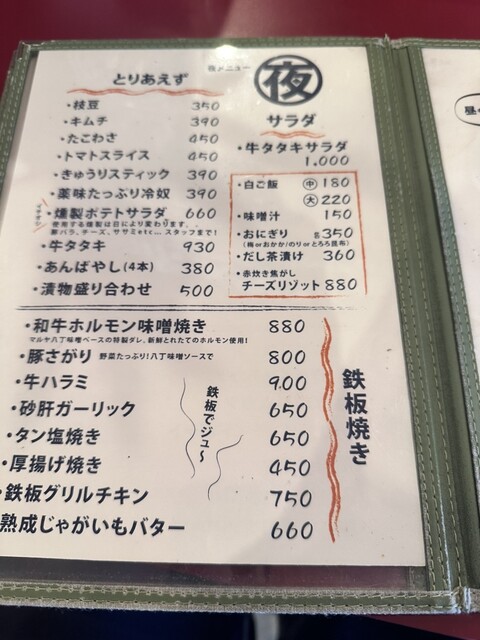 夜メニュー
夜
とりあえず
・枝豆 350
・キムチ 390
・たこわさ 450
・トマトスライス 450
・きゅうりスティック 390
・薬味たっぷり冷奴 390
・燻製ポテトサラダ 660
使用する燻製は日により変わります。
豚バラ、チーズ、ササミetc… スタッフまで!
・牛タタキ 930
・あんばやし(4本) 380
・漬物盛り合わせ 500
サラダ
・牛タタキサラダ
1,000
・白ご飯 中 180
大 220
・味噌汁 150
・おにぎり 各350
(梅orおかか/のりorとろろ昆布)
・だし茶漬け 360
・赤炊き焦がし
チーズリゾット 880
鉄板焼き
・和牛ホルモン味噌焼き 880
マルヤ八丁味噌ベースの特製ダレ、新鮮とれたてのホルモン使用!
・豚さがり 野菜たっぷり!八丁味噌ソースで 800
・牛ハラミ 900
・砂肝ガーリック 650
・タン塩焼き 650
・厚揚げ焼き 450
・鉄板グリルチキン 750
熟成じゃがいもバター 660
鉄板でジュ〜
昼